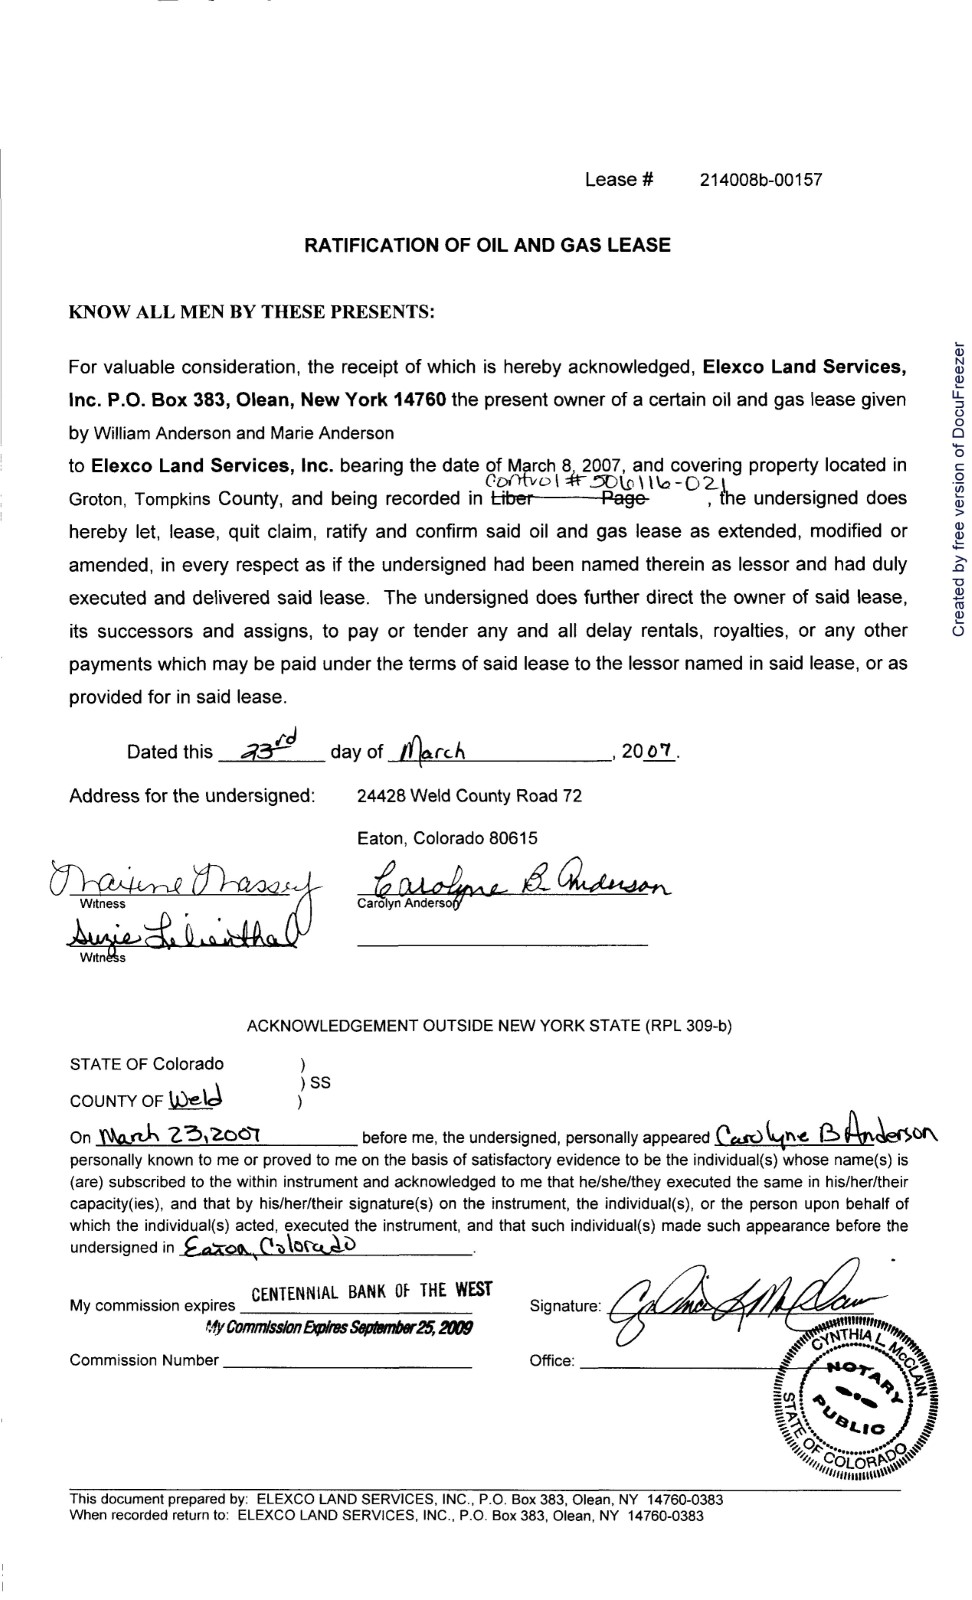 Lease # 214008b-00157
RATIFICATION OF OIL AND GAS LEASE
KNOW ALL MEN BY THESE PRESENTS:
For valuable consideration, the receipt of which is hereby acknowledged, Elexco Land Services,
Inc. P.O. Box 383, Olean, New York 14760 the present owner of a certain oil and gas lease given
by William Anderson and Marie Anderson
to Elexco Land Services, Inc. bearing the date of March 8, 2007, and covering property located in
Control # 506116-021
Groton, Tompkins County, and being recorded in Liber Page , the undersigned does
hereby let, lease, quit claim, ratify and confirm said oil and gas lease as extended, modified or
amended, in every respect as if the undersigned had been named therein as lessor and had duly
executed and delivered said lease. The undersigned does further direct the owner of said lease,
its successors and assigns, to pay or tender any and all delay rentals, royalties, or any other
payments which may be paid under the terms of said lease to the lessor named in said lease, or as
provided for in said lease.
Dated this 23rd day of March , 2007.
Address for the undersigned: 24428 Weld County Road 72
Eaton, Colorado 80615
Maxine Massey Carolyne B. Anderson
Witness Carolyn Anderson
Suzie Lilienthal
Witness
ACKNOWLEDGEMENT OUTSIDE NEW YORK STATE (RPL 309-b)
STATE OF Colorado )
) SS
COUNTY OF Weld )
On March 23, 2007 before me, the undersigned, personally appeared Carolyne B Anderson
personally known to me or proved to me on the basis of satisfactory evidence to be the individual(s) whose name(s) is
(are) subscribed to the within instrument and acknowledged to me that he/she/they executed the same in his/her/their
capacity(ies), and that by his/her/their signature(s) on the instrument, the individual(s), or the person upon behalf of
which the individual(s) acted, executed the instrument, and that such individual(s) made such appearance before the
undersigned in Eaton, Colorado .
CENTENNIAL BANK OF THE WEST
My commission expires Signature: Cynthia L McClain
My Commission Expires September 25, 2009
Commission Number Office:
CYNTHIA L. McCLAIN
NOTARY
PUBLIC
STATE OF COLORADO
This document prepared by: ELEXCO LAND SERVICES, INC., P.O. Box 383, Olean, NY 14760-0383
When recorded return to: ELEXCO LAND SERVICES, INC., P.O. Box 383, Olean, NY 14760-0383
Created by free version of DocuFreezer